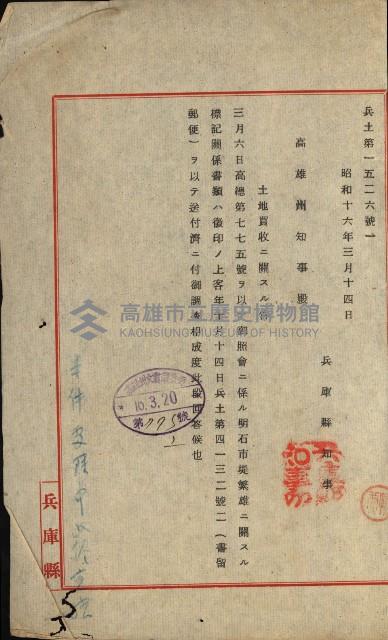 兵土第一五二六號ノ一
昭和十六年三月十四日
兵庫縣知事
高雄州知事殿
土地買收ニ關スル件
三月六日高德第七七五號ヲ以テ御照會ニ係ル明石市堤繁雄ニ關スル
標記關係書類ハ徵印ノ上客年十月十四日兵土第四一三二號ニ（書留
郵便）ヲ以テ送付濟ニ付御調査相成度此段回答候也
16.3.20
第775號
兵庫縣
高雄市立歷史博物館
KAOHSIUNG MUSEUM OF HISTORY